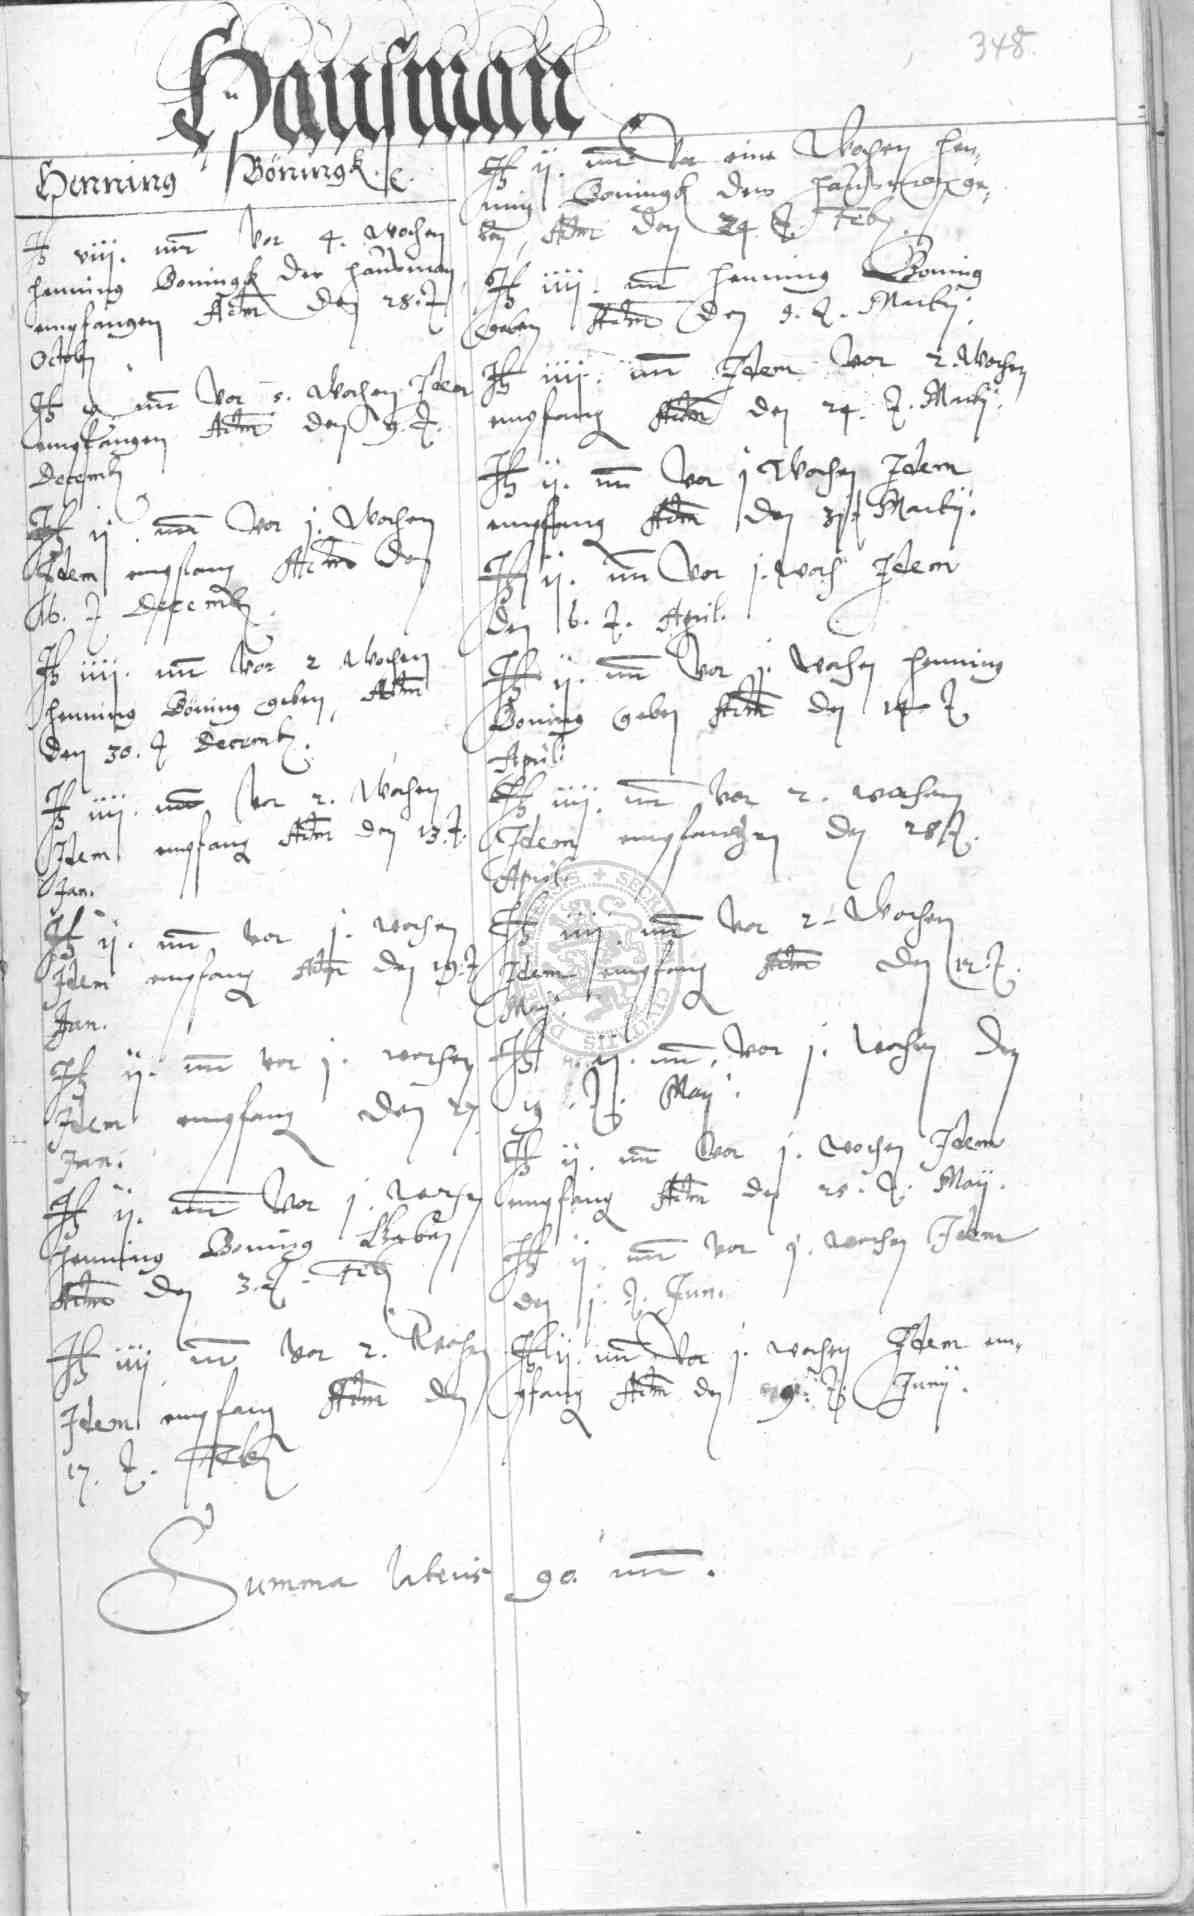 348.
Hausman
Henning Böningk. c.
viij. vor 4. Wochen
Henning Boningk der Hausman
empfangen Actum den 28.
Octob
vor 5. Wochen Idem
empfangen Actum den 9.
Decemb
ij. vor j. Wochen
Idem empfang Actum den
16. Decemb.
iiij. vor 2 Wochen
Henning Böning geben, Actum
den 30. Decemb.
iiij. vor 2. Wochen
Idem empfang Actum den 13.
Jan.
ij. vor j. wochen
Idem empfang Actum den 19.
Jan.
ij. vor j. wochen
Idem empfang den 27.
Jan.
ij. vor j. wochen
Henning Boning geben
Actum den 3. Feb
iiij vor 2. Wochen
Idem empfang Actum den
17. Feb
ij. vor eine Wochen Hen-
ning Boningk der Hausman ge-
ben, Actum den 24. Feb
iiij. Henning Boning
geben Actum den 9. Martij.
iiij. Idem vor 2. Wochen
empfang Actum den 24. Martij.
ij. vor j Wochen Idem
empfang Actum den 31 Martij.
ij. vor j. woch Idem
den 6. April.
ij. vor j. wochen Henning
Boning geben Actum den 14
April
iiij. vor 2. wochen
Idem empfangen den 28.
April.
iiij. vor 2 Wochen
Idem empfang Actum den 12.
Maij.
ij. vor j. Wochen den
19. Maij.
ij. vor j. Wochen Idem
empfang Actum den 25. Maij.
ij vor j. wochen Idem
den j. Jun.
ij. vor j. wochen Idem em-
pfang Actum den 9. Junij.
Summa lateris 90.
SECRE
CIVITATIS